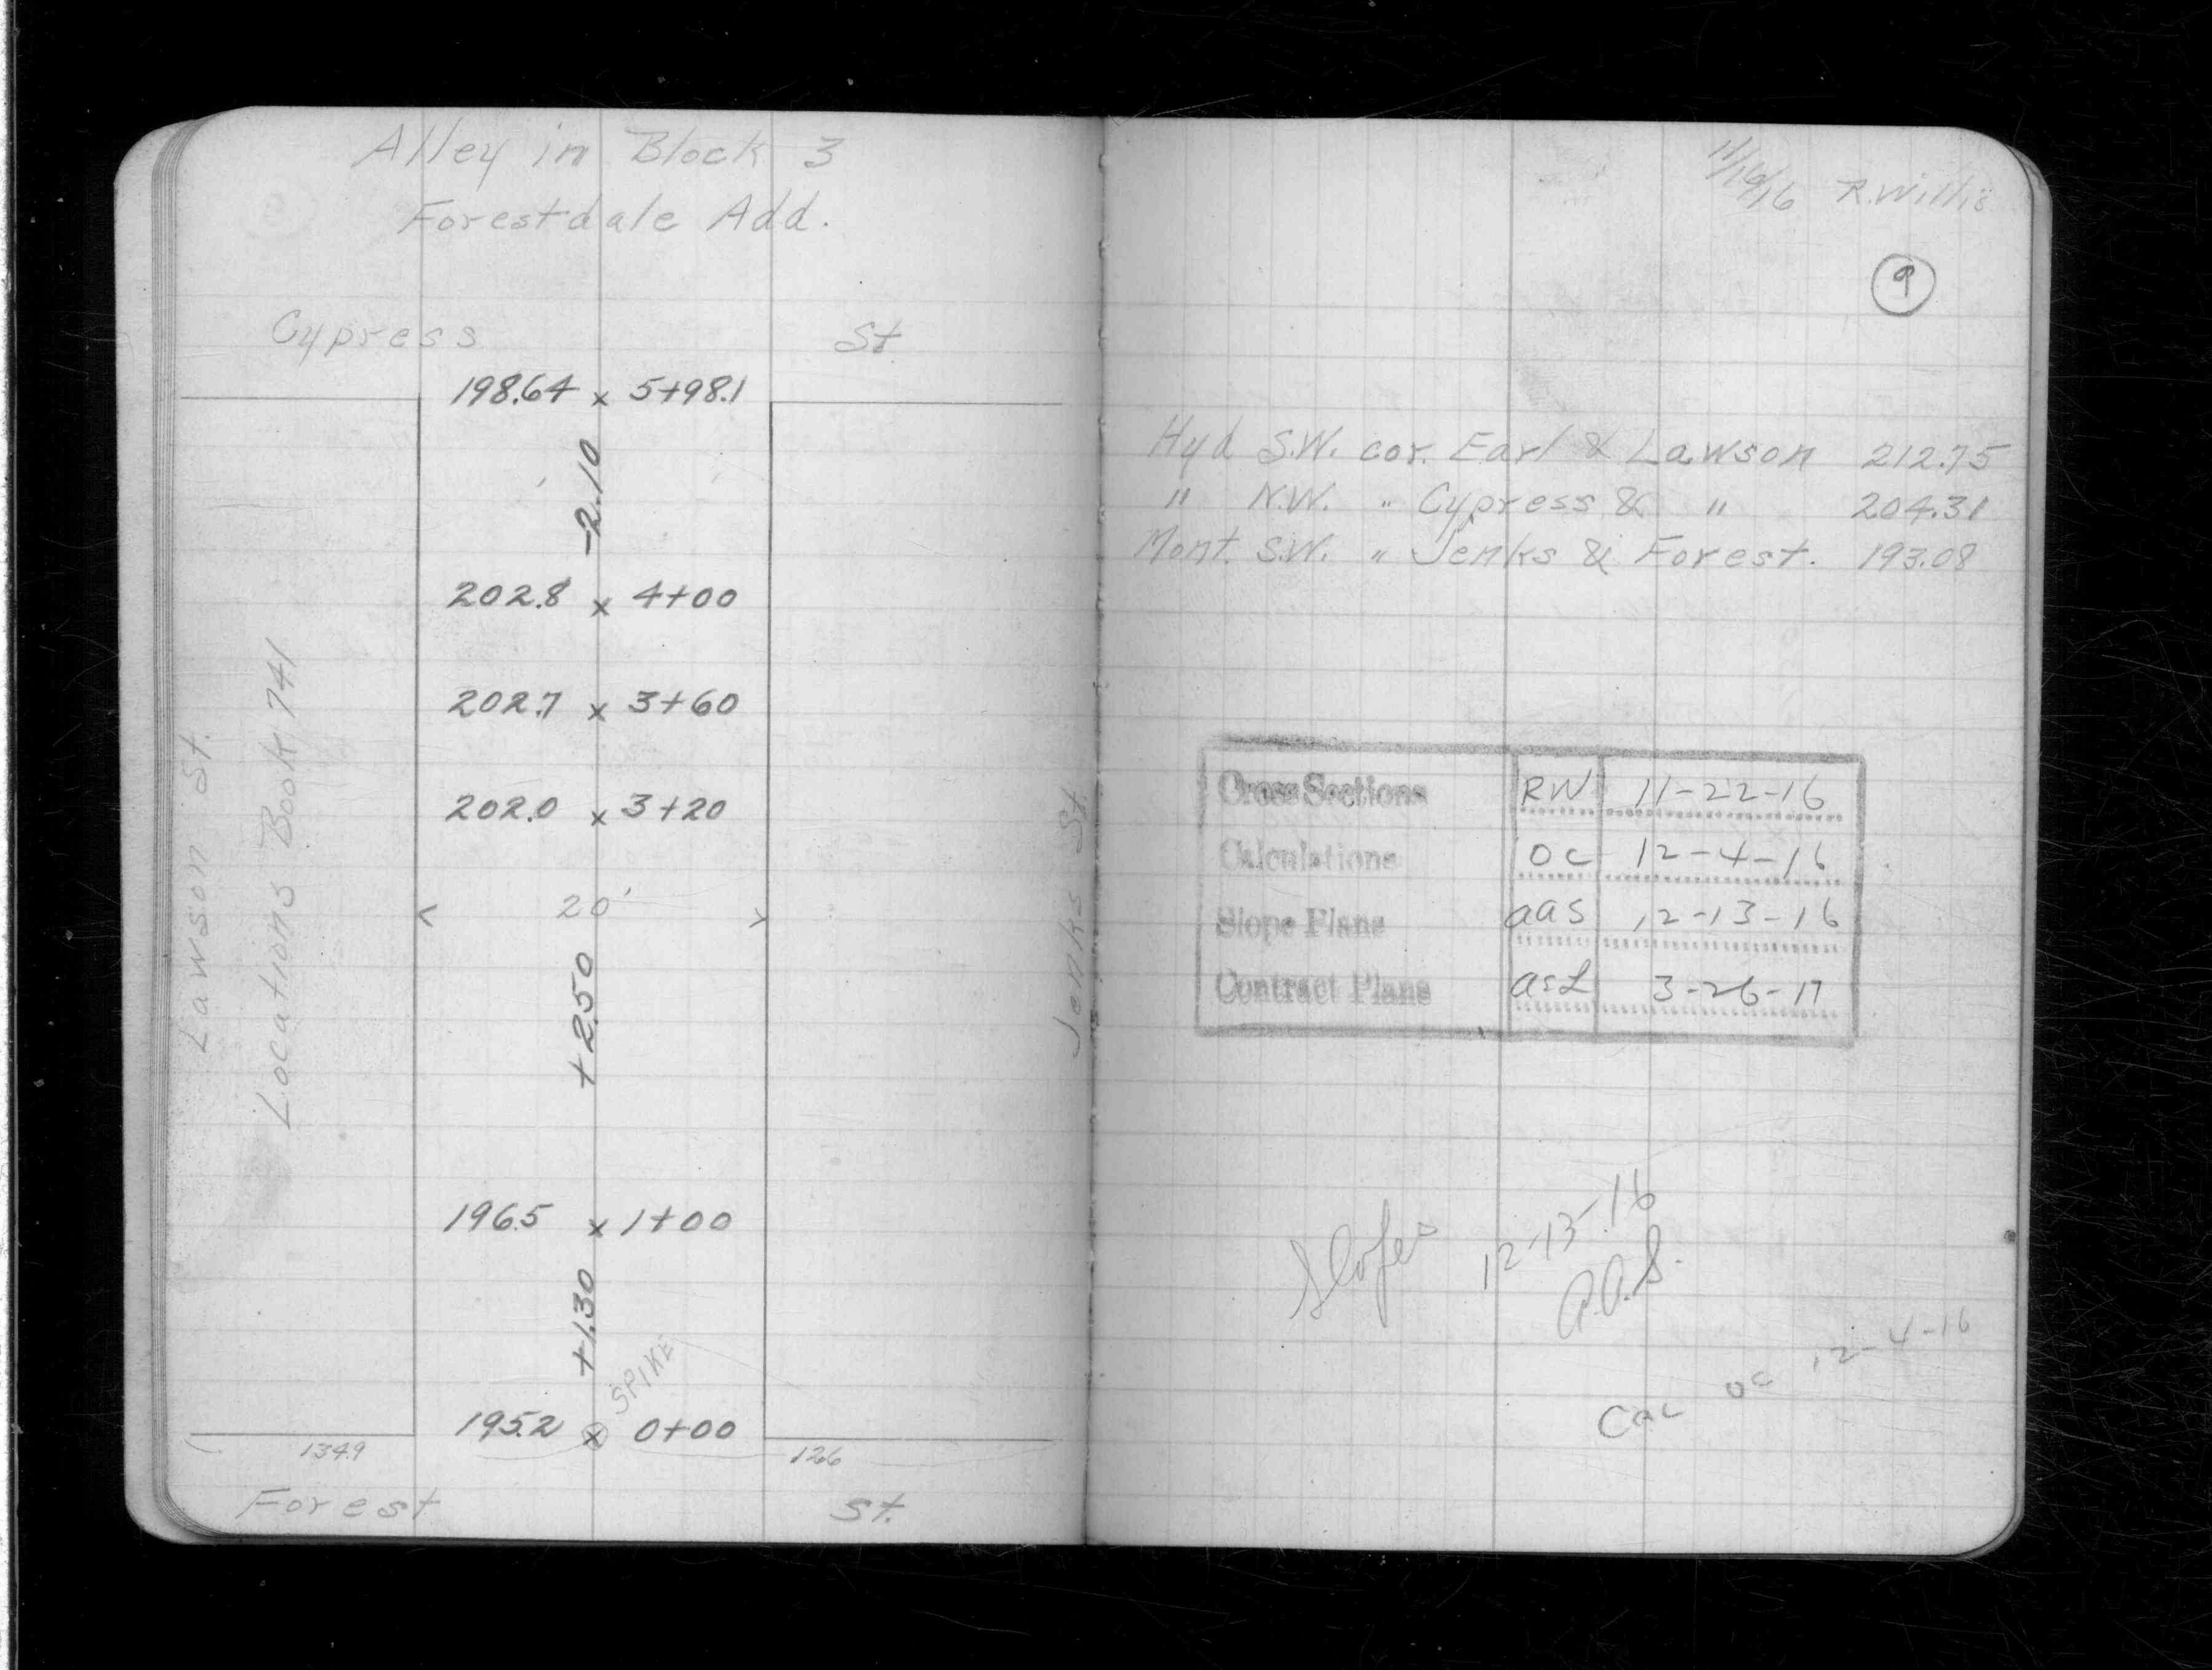 Alley in Block 3
Forestdale Add.
Cypress St.
198.64 x 5+98.1
-2.10
202.8 x 4+00
202.7 x 3+60
202.0 x 3+20
< 20' >
+2.50
196.5 x 1+00
+1.30
SPIKE
195.2 x 0+00
134.9 126
Forest St.
Lawson St.
Locations Book 741
Jenks St.
11/16/16 R. Willis
9
Hyd S.W. cor. Earl & Lawson 212.75
" N.W. " Cypress & " 204.31
Mont. S.W. " Jenks & Forest. 193.08
Cross Sections RW 11-22-16
Calculations OC 12-4-16
Slope Plans aas 12-13-16
Contract Plans asL 3-26-17
Slopes 12-13-16
A.A.S.
Cac OC 12-4-16